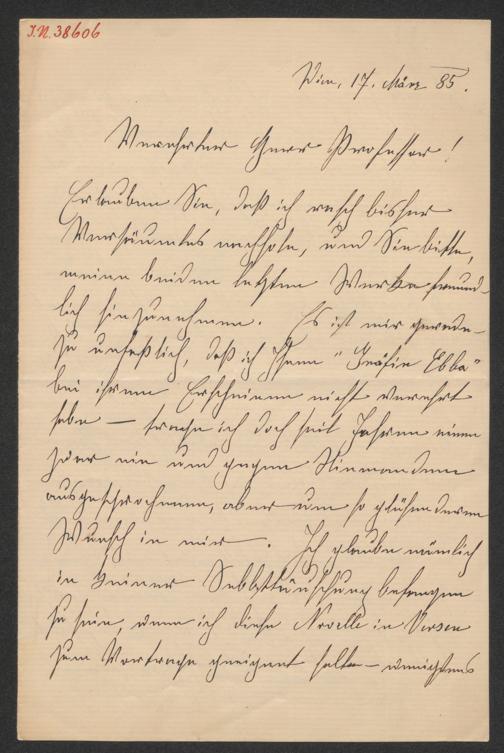 J.N. 38606
Wien, 17. März 85.
Verehrter Herr Professor!
Erlauben Sie, daß ich rasch bisher
Versäumtes nachhole, und Sie bitte,
meine beiden letzten Werke freund-
lich hinzunehmen. Es ist mir gerade-
zu unfaßlich, daß ich Ihnen "Gräfin Ebba"
bei ihrem Erscheinen nicht verehrt
habe — trage ich doch seit Jahren einen
zwar nie und gegen Niemanden
ausgesprochenen, aber um so glühenderen
Wunsch in mir. Ich glaube nämlich
in keiner Selbsttäuschung befangen
zu sein, wenn ich diese Novelle in Versen
zum Vortrage geeignet halte — wenigstens